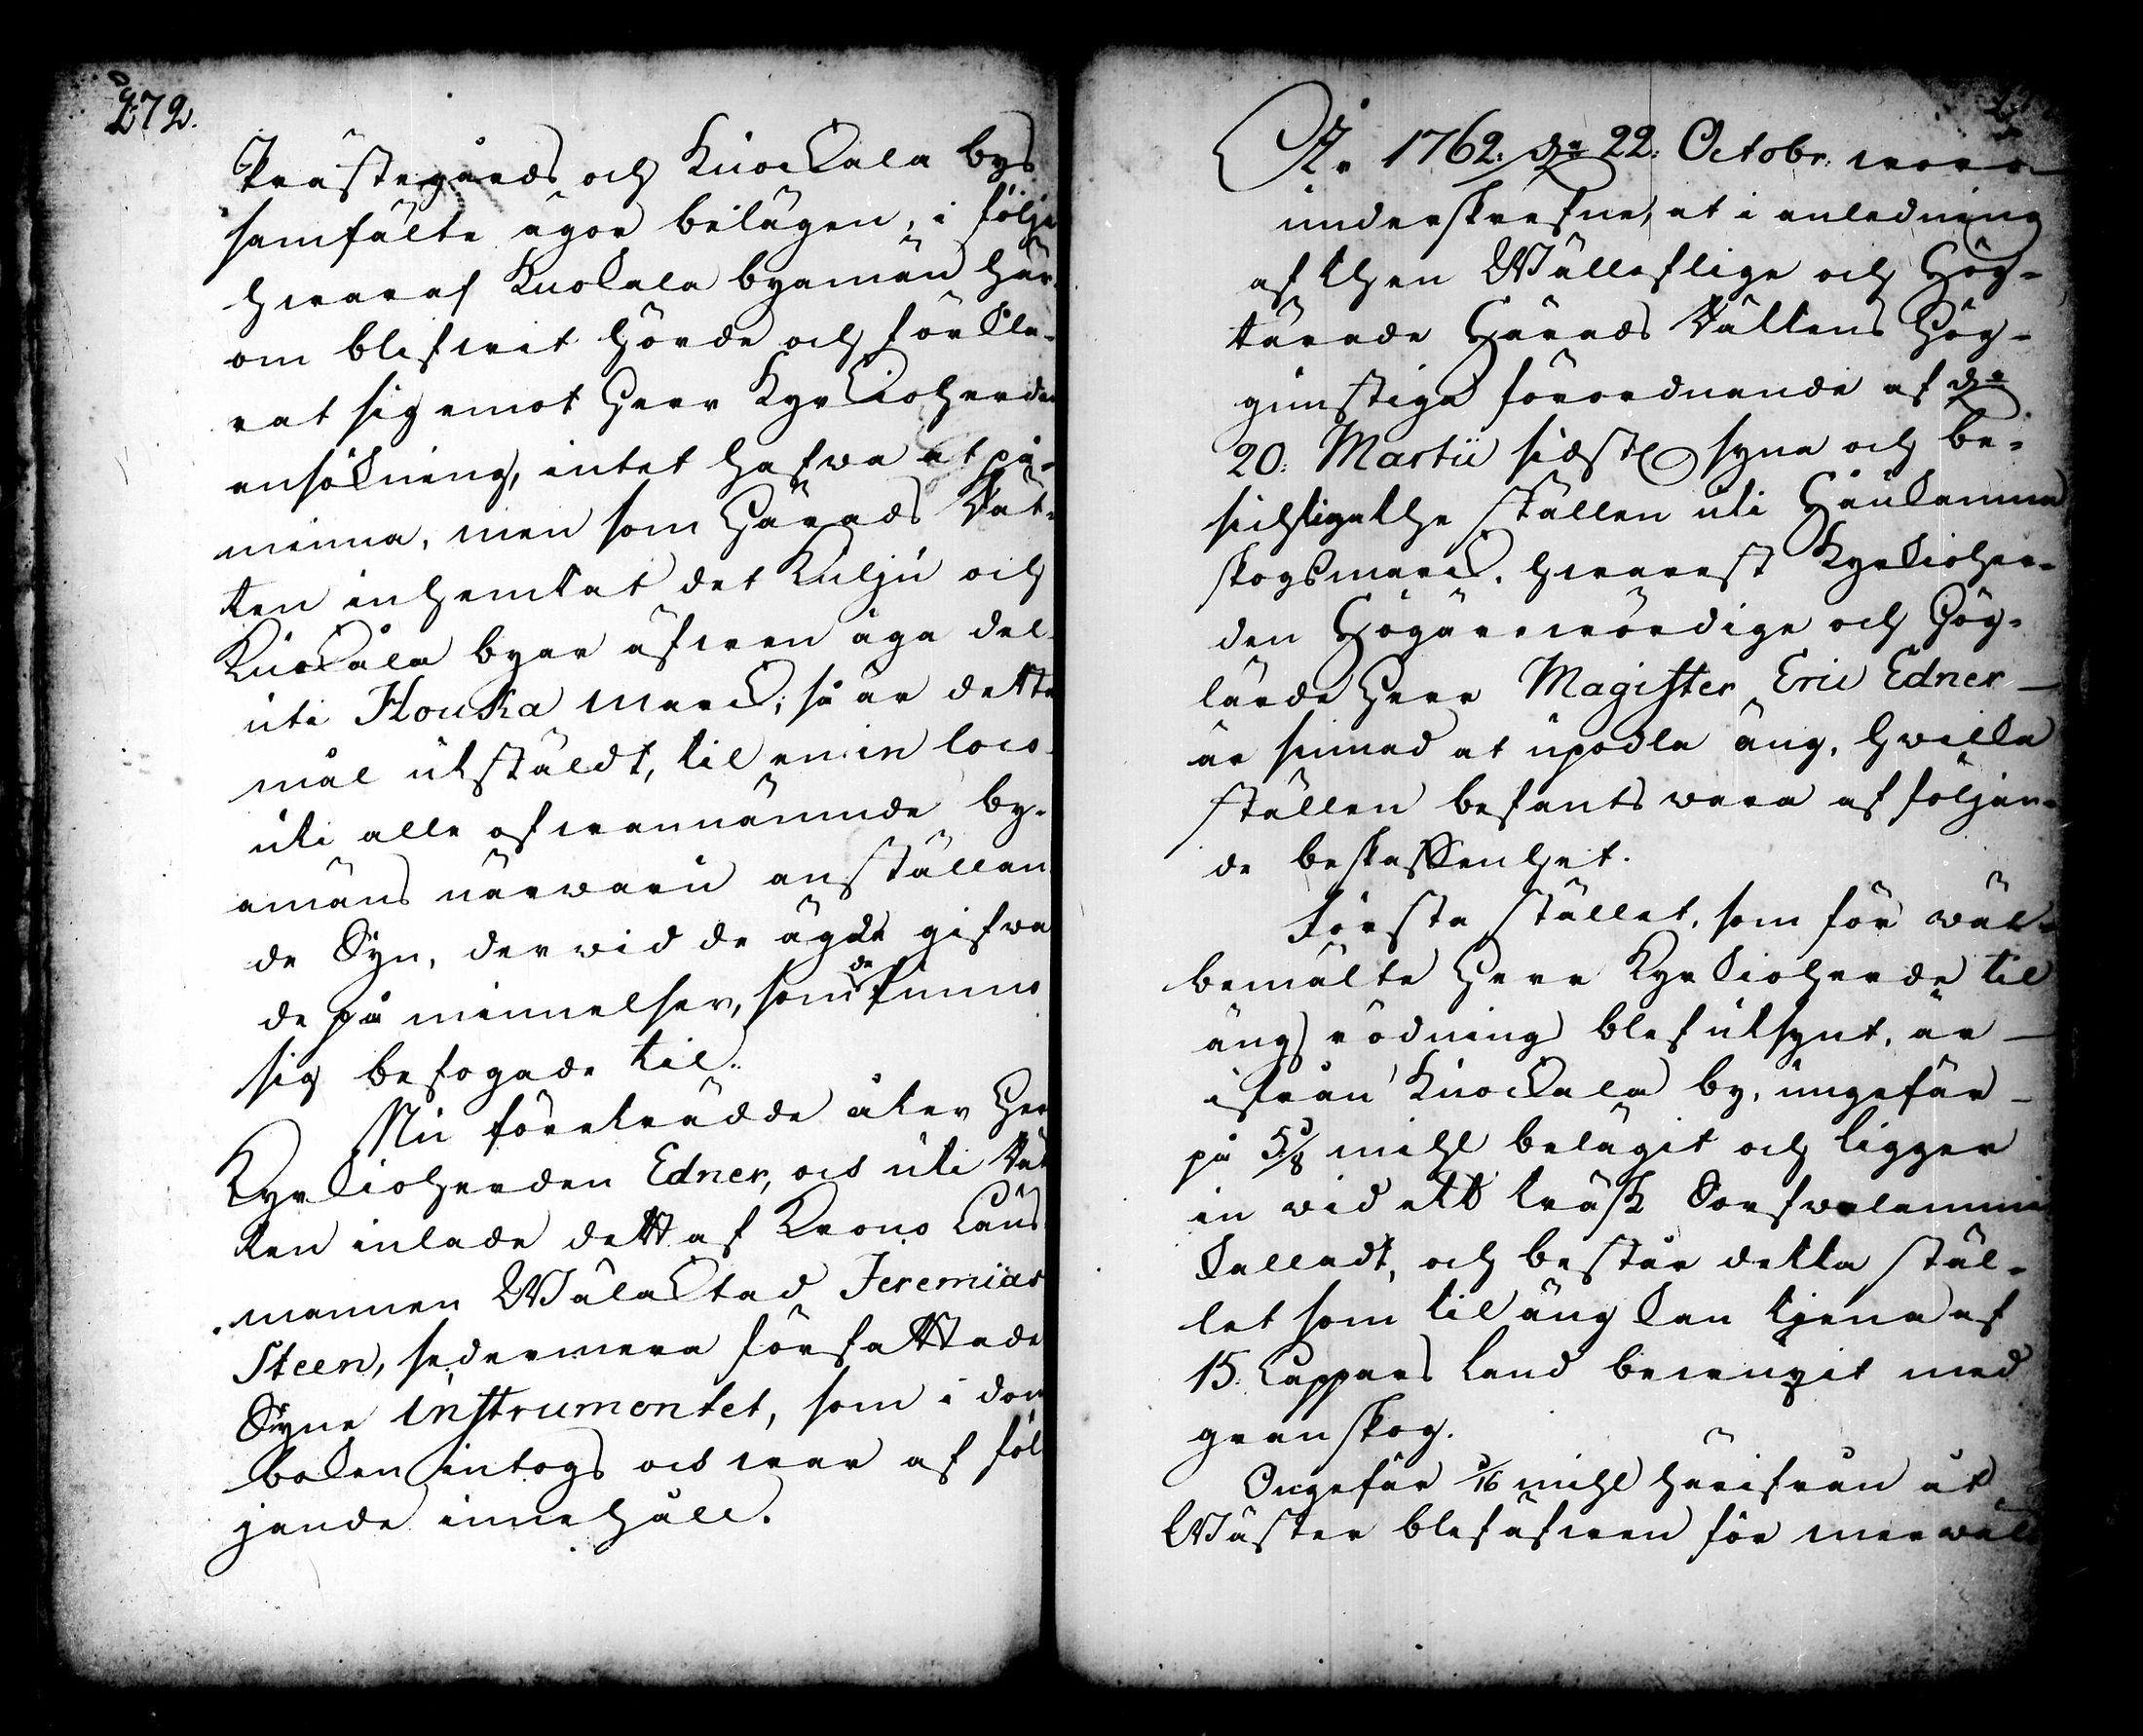 272.
Prästegårds och Kuockala bys
samfälte ägor belägen; i följe
hwaraf Kuokala byamän här-
om blifwit hörde och förkla-
rat sig emot Herr Kyrkioherden
ansökning, intet hafwa at på-
minna, men som Härads Rät-
ten inhemtat det Kulju och
Kuokala byar äfwen äga del
uti Houka marck; så är detta
mål utstäldt, til en in loco
uti alle ofwannämnde by-
amäns närwaru anställan-
de Syn, derwid de ägde gifwa
de påminnelser, som de finna
sig befogade til.
Nu företrädde åter Herr
Kyrkioherden Edner, ock uti Rät
ten inlade dett af Krono Läns
mannen Wälacktad Jeremias
Steen, sedermera författade
Syne instrumentet, som i dom
boken intogs ock war af föl
jande innehåll.
År 1762. dn 22. Octobr. wore
underskrefne, at i anledning
af then Wällofliga och Hög-
lärade Härads Rättens Hög-
gunstiga förordnande af dn
20. Martii sidstl. syna och be-
sichtiga the ställen uti Haukamma
skogsmarck, hwarest Kyrkioher-
den Högärewördige och Hög-
lärde Herr Magister Eric Edner
är sinnad at upodla äng, hwilka
ställen befants wara af följan-
de beskaffenhet.
Första stället, som för wäl-
bemälte Herr Kyrkioherde til
ängs rödning blef utsynt, är
ifrån Kuockala by, ungefär
på 5/8 mihl belägit och ligger
in wid ett träsk Sorfwalammi
kalladt, och består detta stäl-
let som til äng kan tjena af
15. Cappars land bewuxit med
granskog.
Ongefär 1/16 mihl härifrån åt
Wäster blef äfwen för merwäl